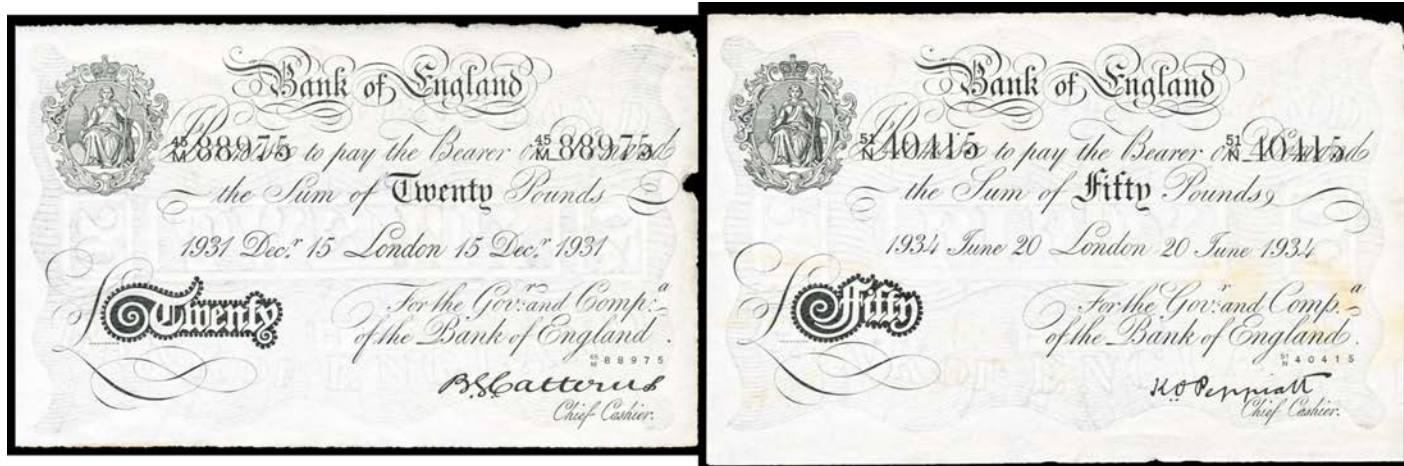 Bank of England
45/M 88975 to pay the Bearer on Demand 45/M 88975
the Sum of Twenty Pounds
1931 Decr. 15 London 15 Decr. 1931
£ Twenty
For the Govr. and Compa.
of the Bank of England.
45/M 88975
B.G. Catterns
Chief Cashier.
Bank of England
51/N 40415 to pay the Bearer on Demand 51/N 40415
the Sum of Fifty Pounds
1934 June 20 London 20 June 1934
£ Fifty
For the Govr. and Compa.
of the Bank of England.
51/N 40415
K.O. Peppiatt
Chief Cashier.